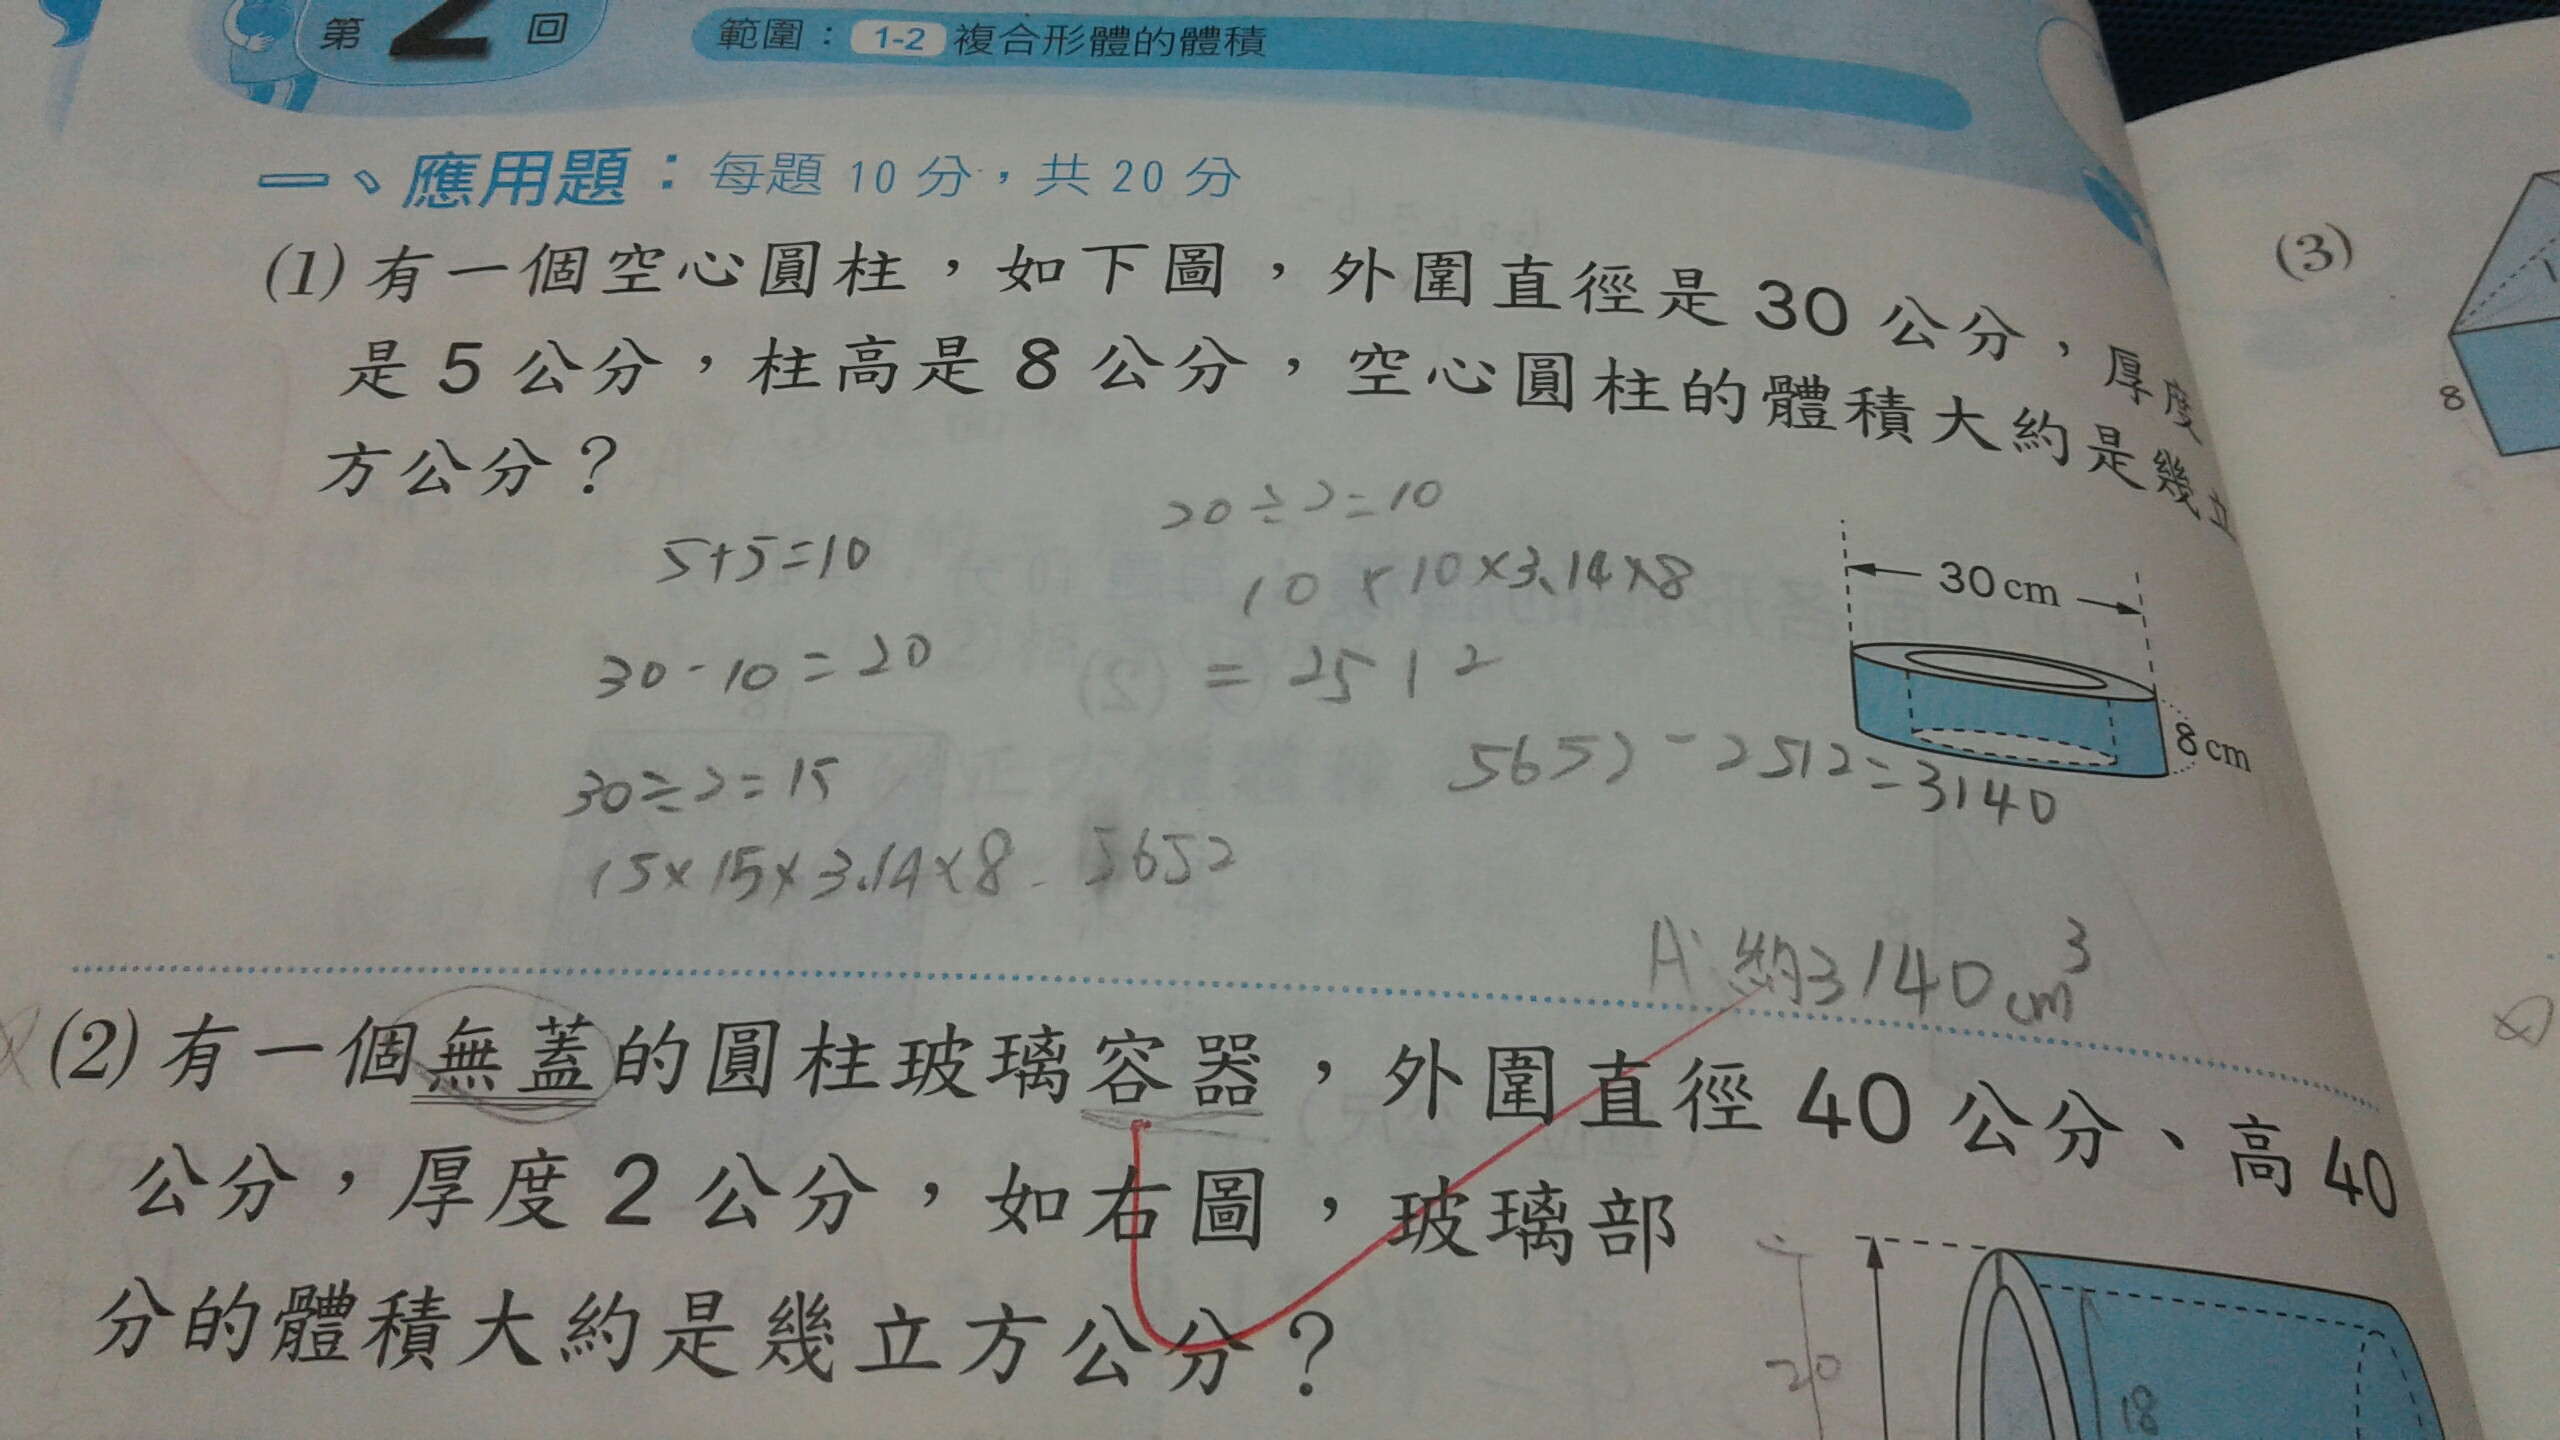 第2回
範圍：1-2 複合形體的體積
一、應用題：每題 10 分，共 20 分
(1) 有一個空心圓柱，如下圖，外圍直徑是 30 公分，厚度
是 5 公分，柱高是 8 公分，空心圓柱的體積大約是幾立
方公分？
5+5=10
30-10=20
30÷2=15
15×15×3.14×8 5652
20÷2=10
10×10×3.14×8
=2512
5652-2512=3140
30 cm
8 cm
A:約3140cm³
(2) 有一個無蓋的圓柱玻璃容器，外圍直徑 40 公分、高 40
公分，厚度 2 公分，如右圖，玻璃部
分的體積大約是幾立方公分？
20
18
(3)
8